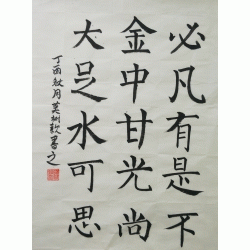 必凡有是不
金中甘光尚
大足水可思
丁酉秋月莫树歆书之